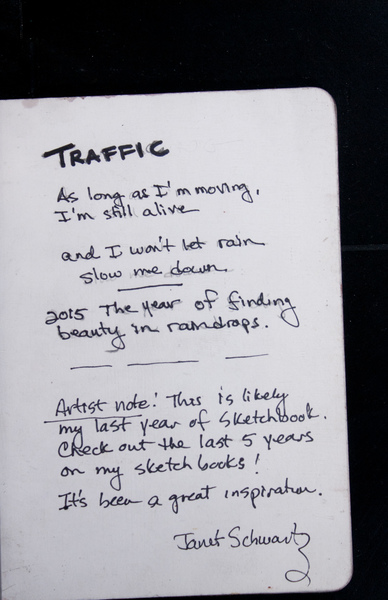 TRAFFIC
As long as I'm moving,
I'm still alive
and I won't let rain
slow me down.
2015 The year of finding
beauty in raindrops.
Artist note! This is likely
my last year of Sketchbook.
Check out the last 5 years
on my sketch books!
It's been a great inspiration.
Janet Schwartz